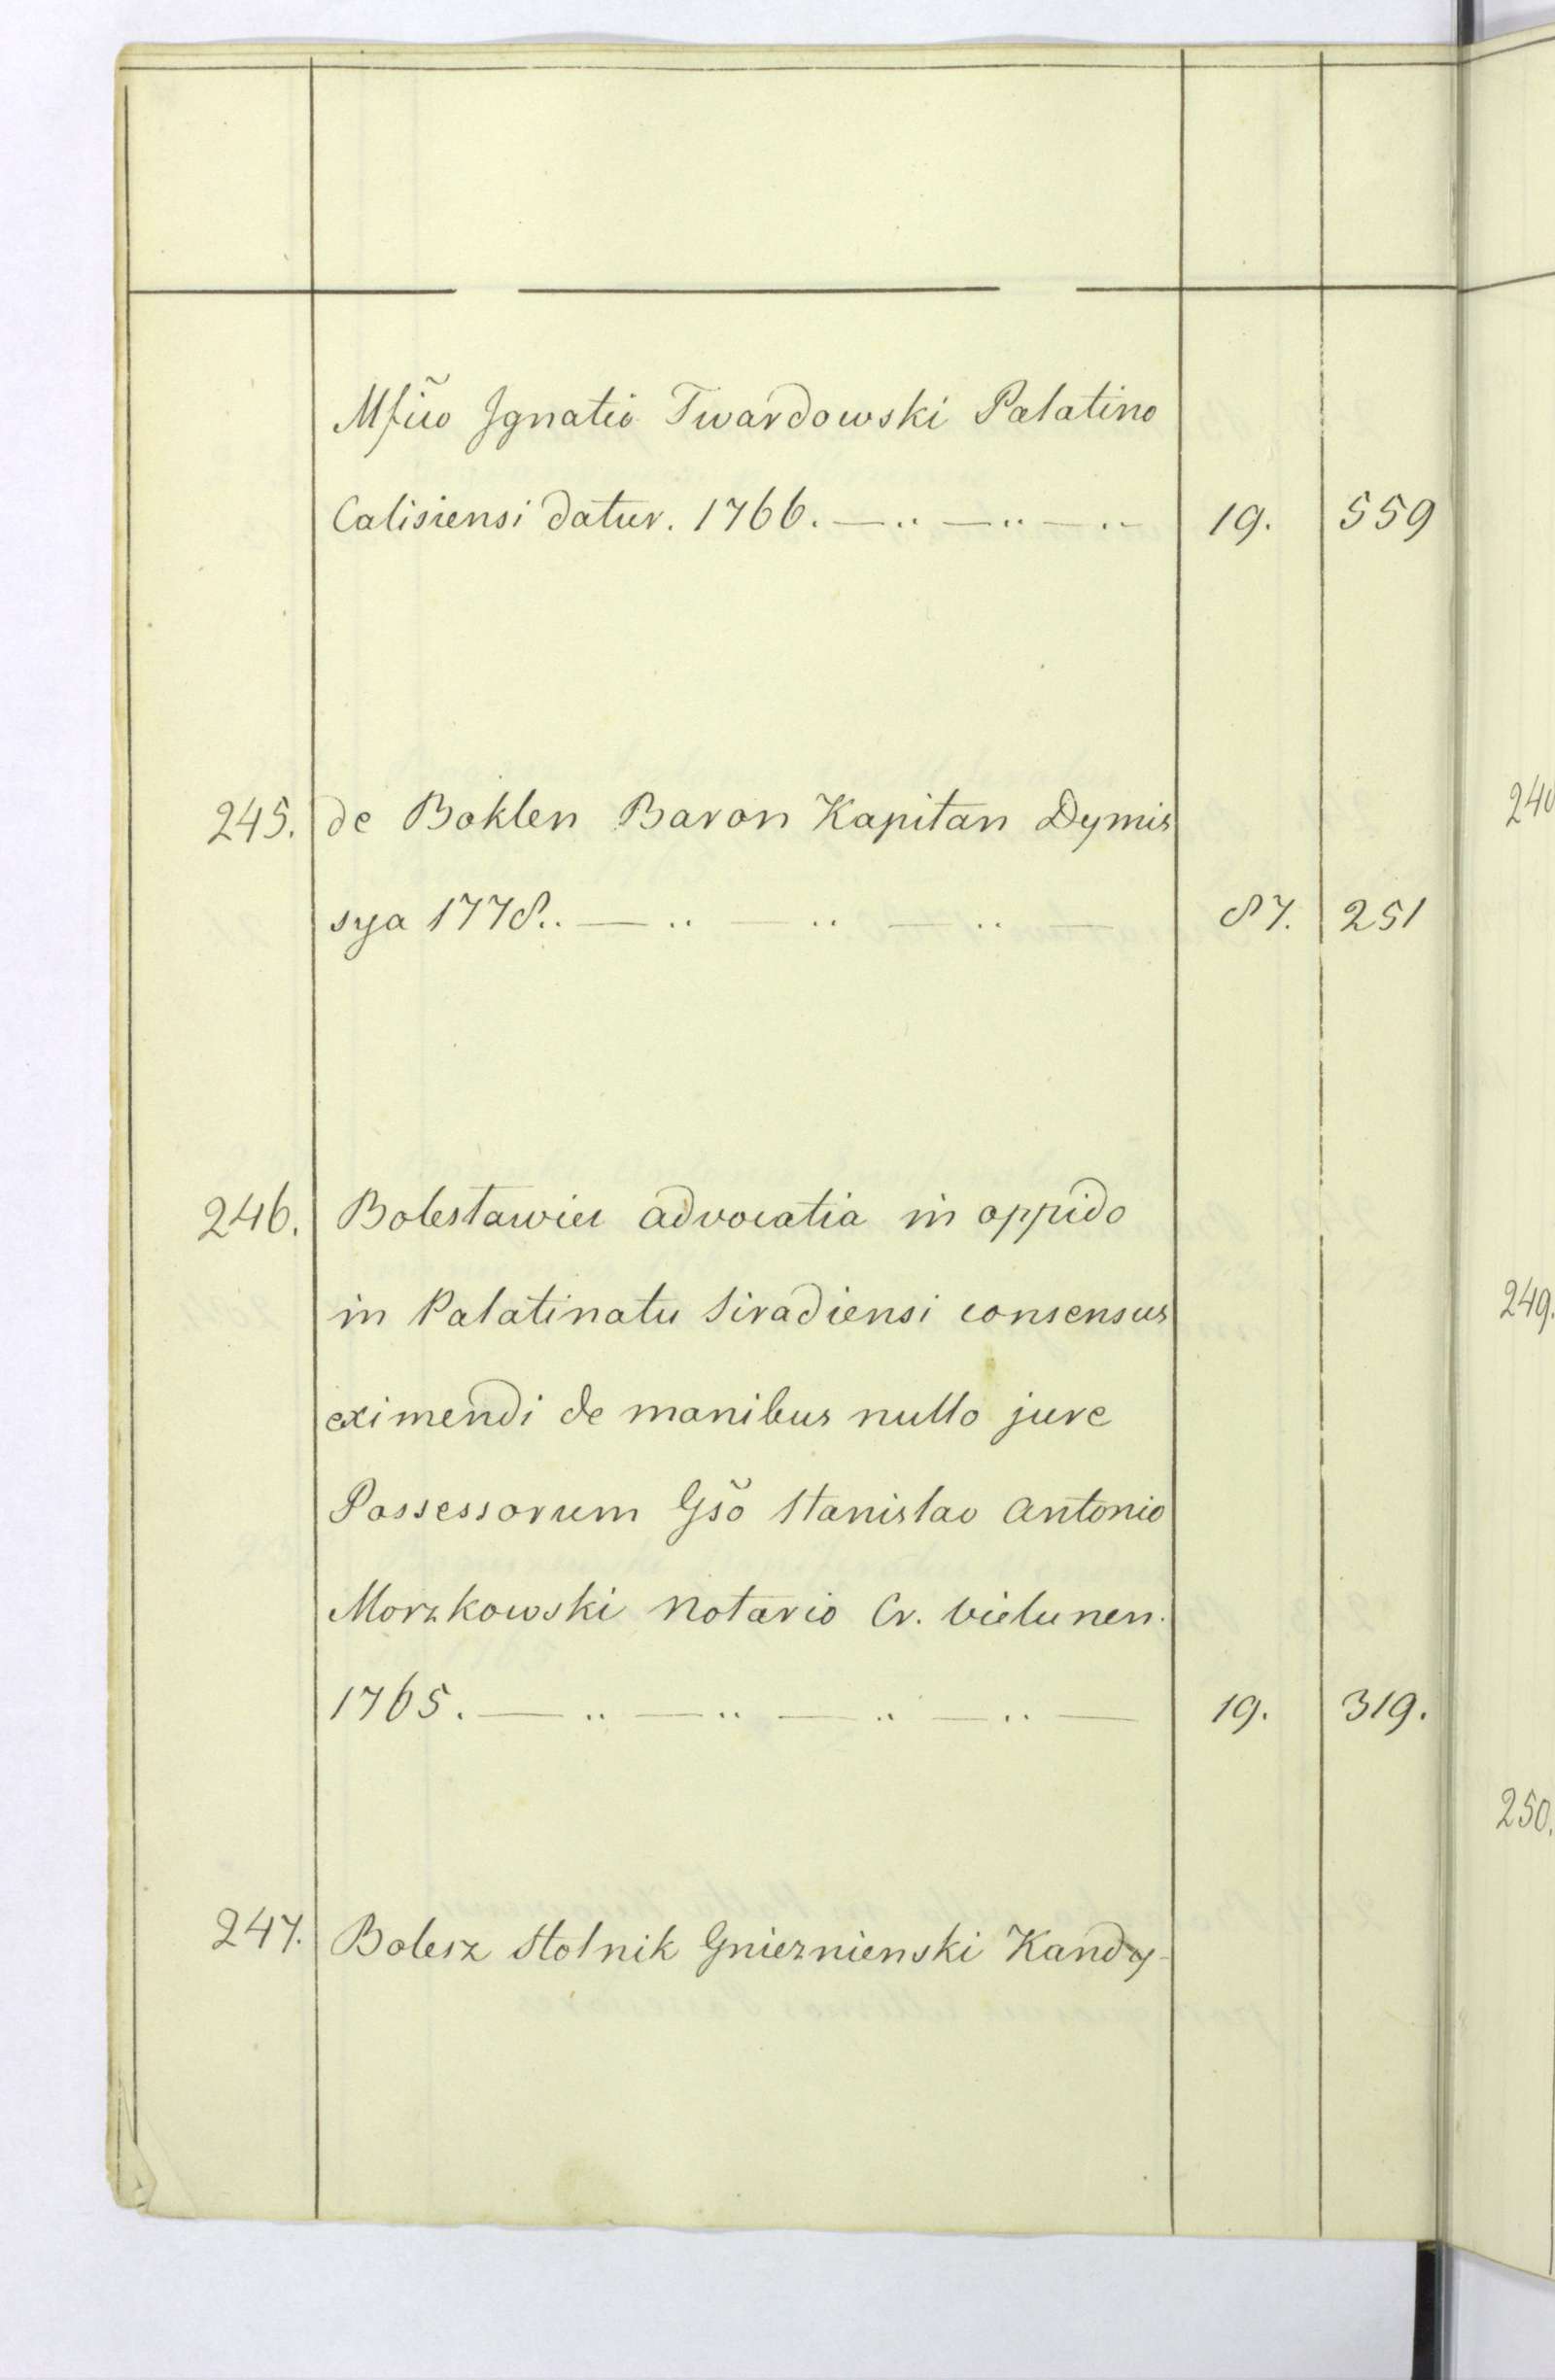 Mficõ Ignatio Twardowski Palatino
Calisiensi datur. 1766. — .. — .. — .. 19. 559
245. de Boklen Baron Kapitan Dymis
sya 1778. . — .. — .. — .. — 87. 251
246. Bolesławiec advocatia in oppido
in Palatinatu Siradiensi consensus
eximendi de manibus nullo jure
Possessorum Gsõ Stanislao Antonio
Morzkowski Notario Cr. Vielunen.
1765. — .. — .. — .. — .. — 19. 319.
247. Bolesz Stolnik Gnieznienski Kandy-
240
249.
250.